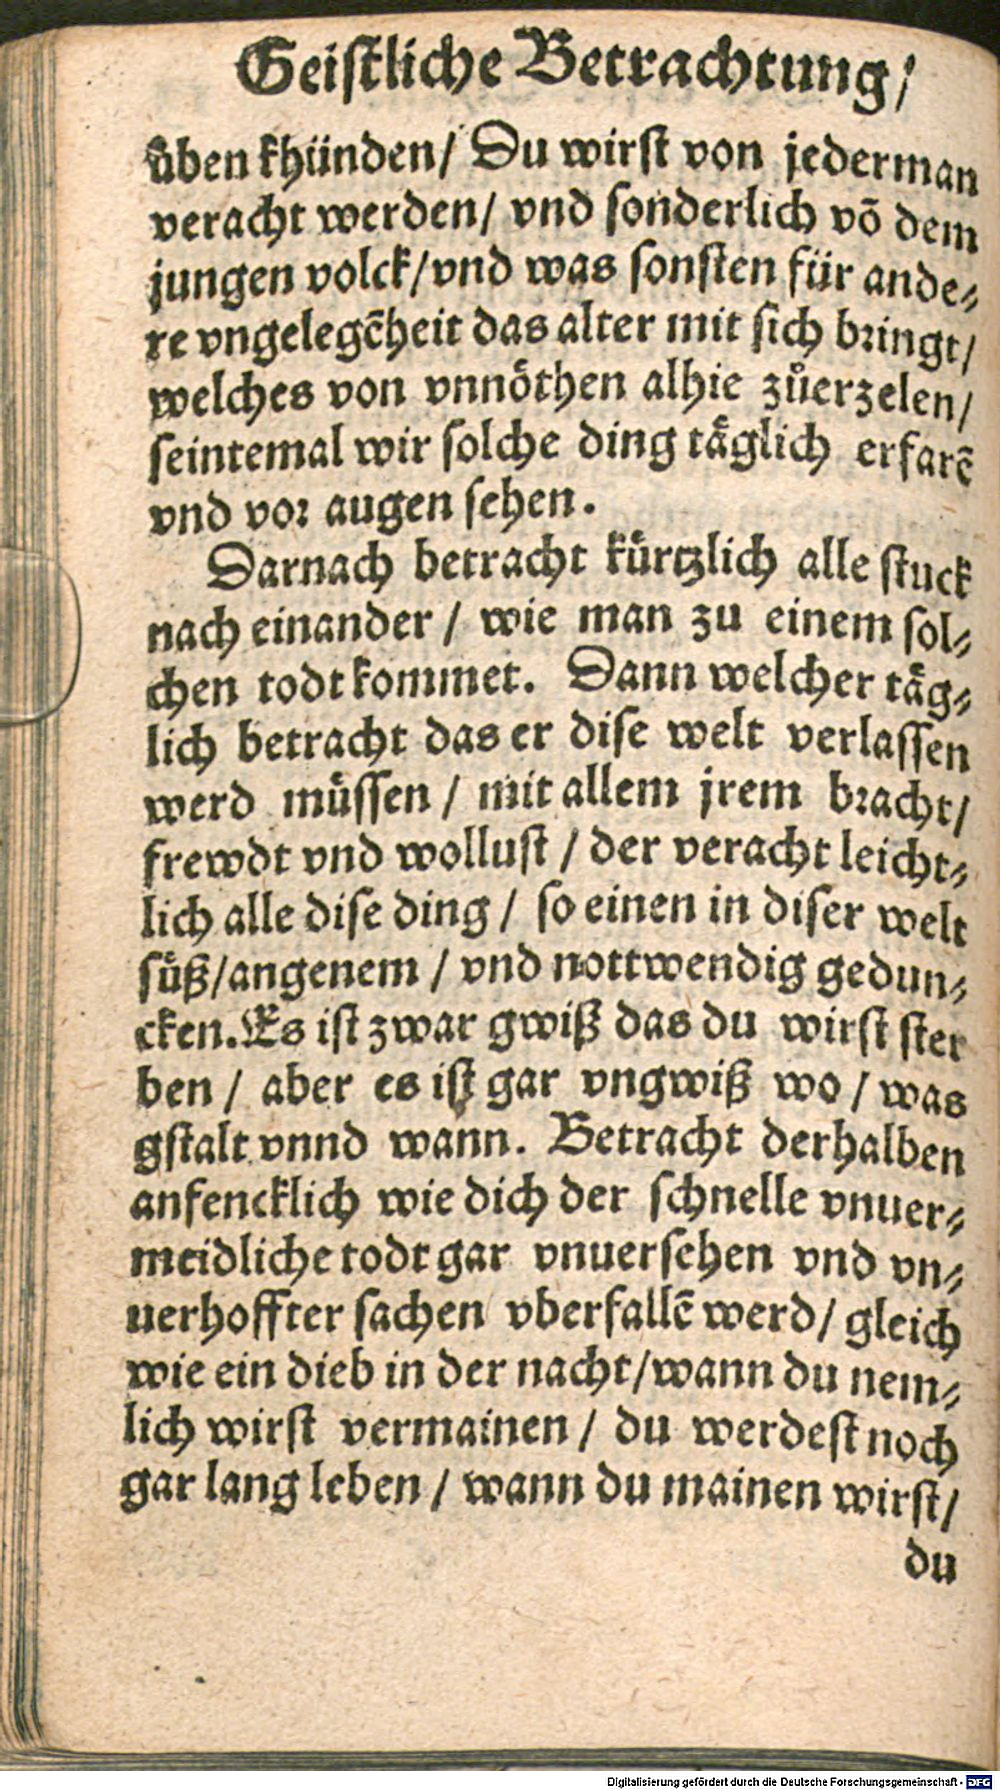 Geistliche Betrachtung/
üben khünden/ Du wirst von jederman
veracht werden/ vnd sonderlich võ dem
jungen volck/vnd was sonsten für ande⸗
re vngelegẽheit das alter mit sich bringt/
welches von vnnöthen alhie zůerzelen/
seintemal wir solche ding täglich erfarẽ
vnd vor augen sehen.
Darnach betracht kürtzlich alle stuck
nach einander / wie man zu einem sol⸗
chen todt kommet. Dann welcher täg⸗
lich betracht das er dise welt verlassen
werd müssen / mit allem jrem bracht/
frewdt vnd wollust / der veracht leicht⸗
lich alle dise ding / so einen in diser welt
süß/angenem / vnd nottwendig gedun⸗
cken.Es ist zwar gwiß das du wirst ster
ben / aber es ist gar vngwiß wo / was
gstalt vnnd wann. Betracht derhalben
anfencklich wie dich der schnelle vnuer⸗
meidliche todt gar vnuersehen vnd vn⸗
uerhoffter sachen vberfallẽ werd/ gleich
wie ein dieb in der nacht/wann du nem⸗
lich wirst vermainen / du werdest noch
gar lang leben / wann du mainen wirst/
du
Digitalisierung gefördert durch die Deutsche Forschungsgemeinschaft - DFG